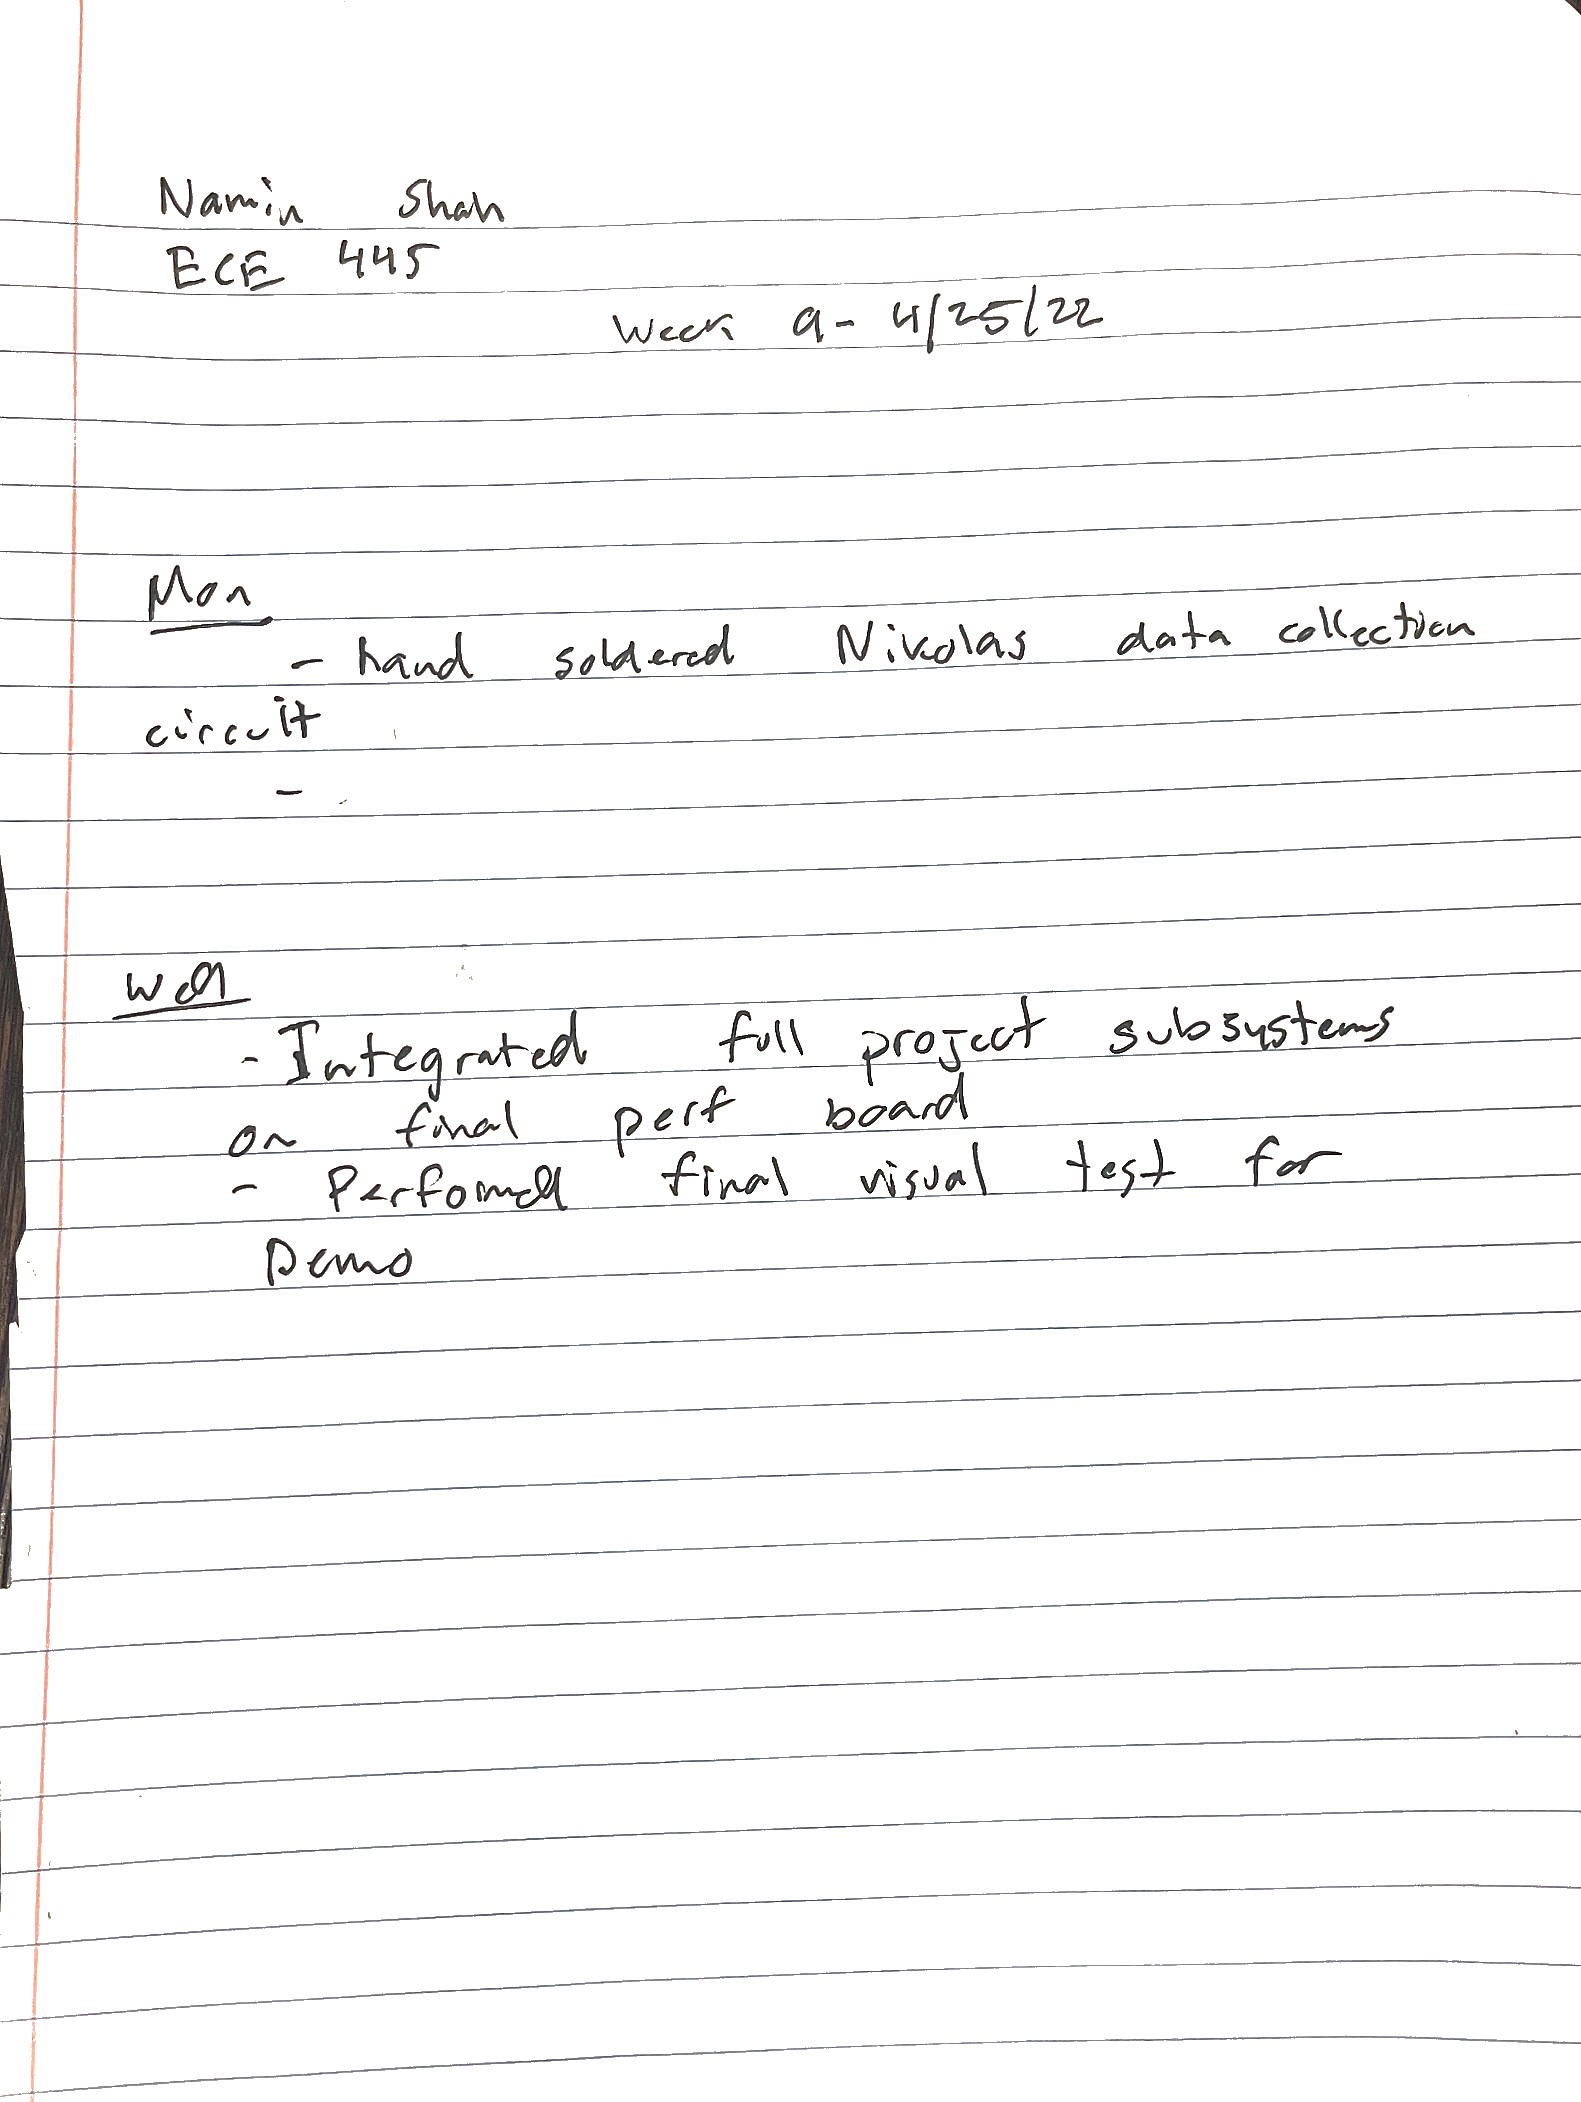 Namin Shah
ECE 445
Week 9- 4/25/22
Mon
- hand soldered Nikolas data collection
circuit
-
Wed
- Integrated full project subsystems
on final perf board
- Perfomed final visual test for
Demo